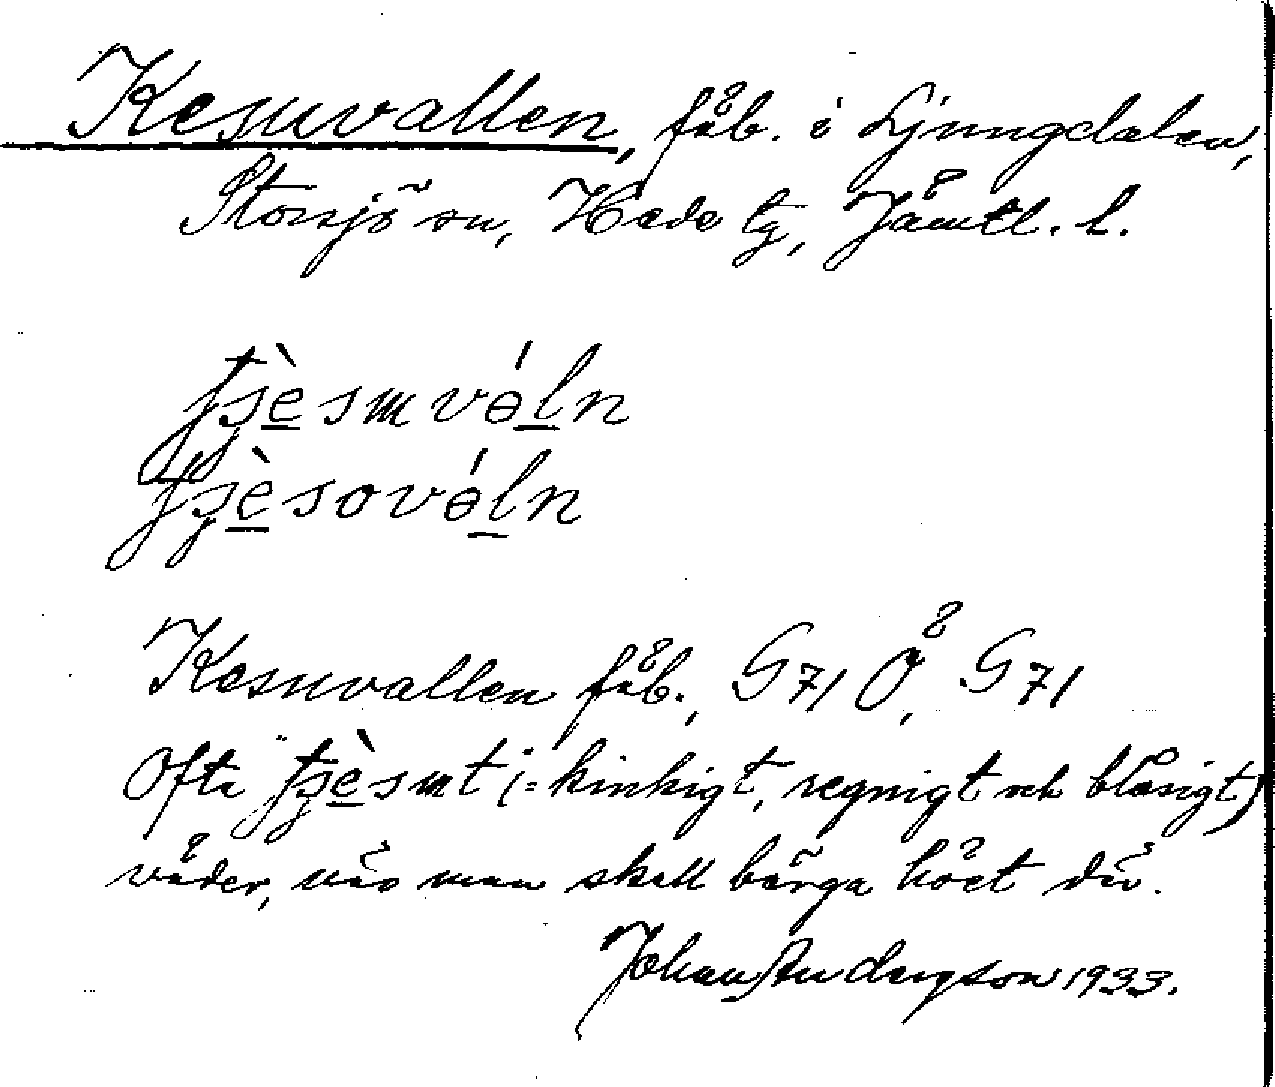 Kesuvallen, fäb. i Ljungdalen,
Storsjö sn, Hede tg, Jämtl. l.
fjèsmvəln
fjèsovəln
Kesuvallen fäb., G71 Ö, G71
Ofta tjèsmt (= kinkigt, regnigt och blåsigt)
väder, när man skall bärga höet där.
Johan Andersson 1933.